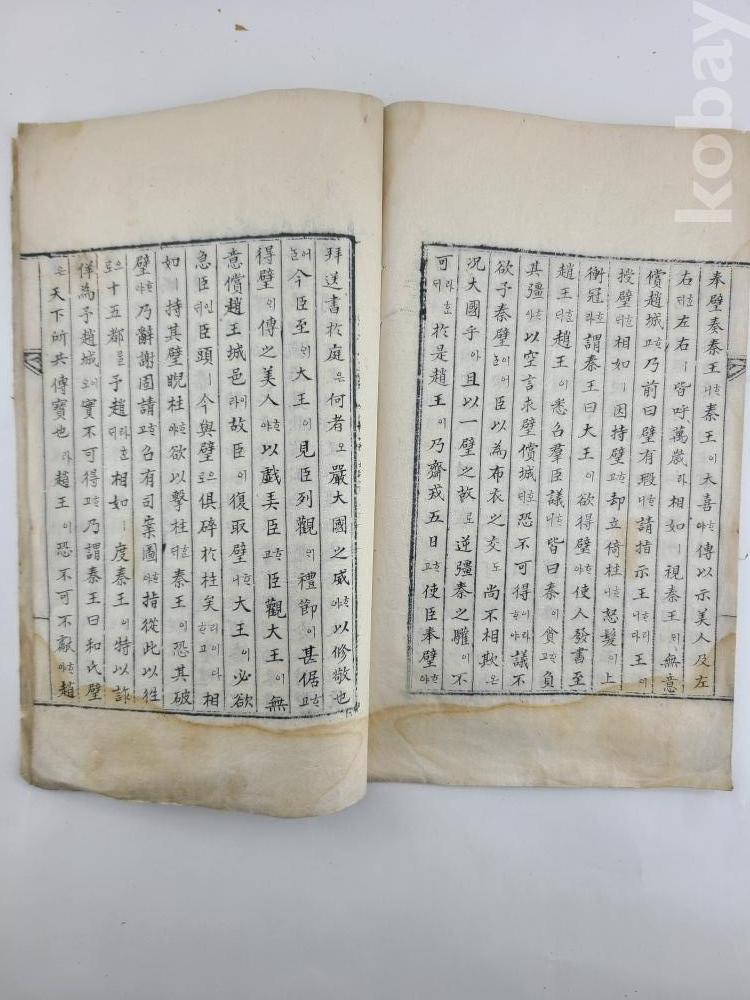 奉璧秦秦王ᄒᆞ니秦王이大喜ᄒᆞ야傳以示美人及左
右ᄒᆞᆫᄃᆡ左右ㅣ皆呼萬歲라相如ㅣ視秦王의無意
償趙城ᄒᆞ고乃前曰璧有瑕ᄒᆞ니請指示王ᄒᆞ리니다王이
授璧ᄒᆞᆫᄃᆡ相如ㅣ因持璧ᄒᆞ고却立倚柱ᄒᆞ니怒髮이上
衝冠ᄒᆞ라謂秦王曰大王이欲得璧ᄒᆞ야使人發書至
趙王ᄒᆞᆫᄃᆡ趙王이悉召羣臣議ᄒᆞ니皆曰秦이貪ᄒᆞ고負
其彊ᄒᆞ야以空言求璧償城호ᄃᆡ恐不可得이라ᄒᆞ야議不
欲予秦璧이어ᄂᆞᆯ臣以為布衣之交도尚不相欺온
況大國乎아且以一璧之故로逆彊秦之驩이不
可라ᄒᆞᆫᄃᆡ於是趙王이乃齋戒五日ᄒᆞ고使臣奉璧ᄒᆞ야
拜送書於庭은何者오嚴大國之威ᄒᆞ야以修敬也
어ᄂᆞᆯ今臣至의大王이見臣列觀의禮節이甚倨ᄒᆞ고
得璧의傳之美人ᄒᆞ야以戲美臣ᄒᆞ고臣觀大王이無
意償趙王城邑이라故臣이復取璧ᄒᆞ니大王이必欲
急臣인ᄃᆡ臣頭ㅣ今與璧으로俱碎於柱矣리이다ᄒᆞ고相
如ㅣ持其璧睨柱ᄒᆞ야欲以擊柱ᄒᆞᆫᄃᆡ秦王이恐其破
璧ᄒᆞ야乃辭謝固請ᄒᆞ고召有司案圖ᄒᆞ야指從此以往
으로十五都를予趙라ᄒᆞᆫᄃᆡ相如ㅣ度秦王이特以詐
佯為予趙城이오實不可得ᄒᆞ고乃謂秦王曰和氏璧
은天下所共傳寶也라趙王이恐不可不獻ᄒᆞ야趙
kobay